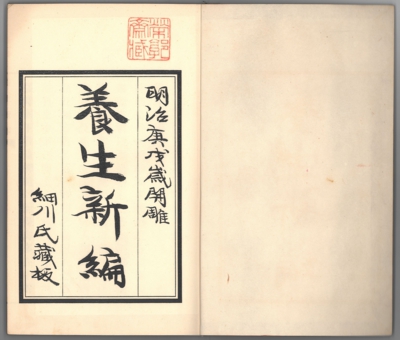 明治庚戌歳開雕
養生新編
細川氏藏板